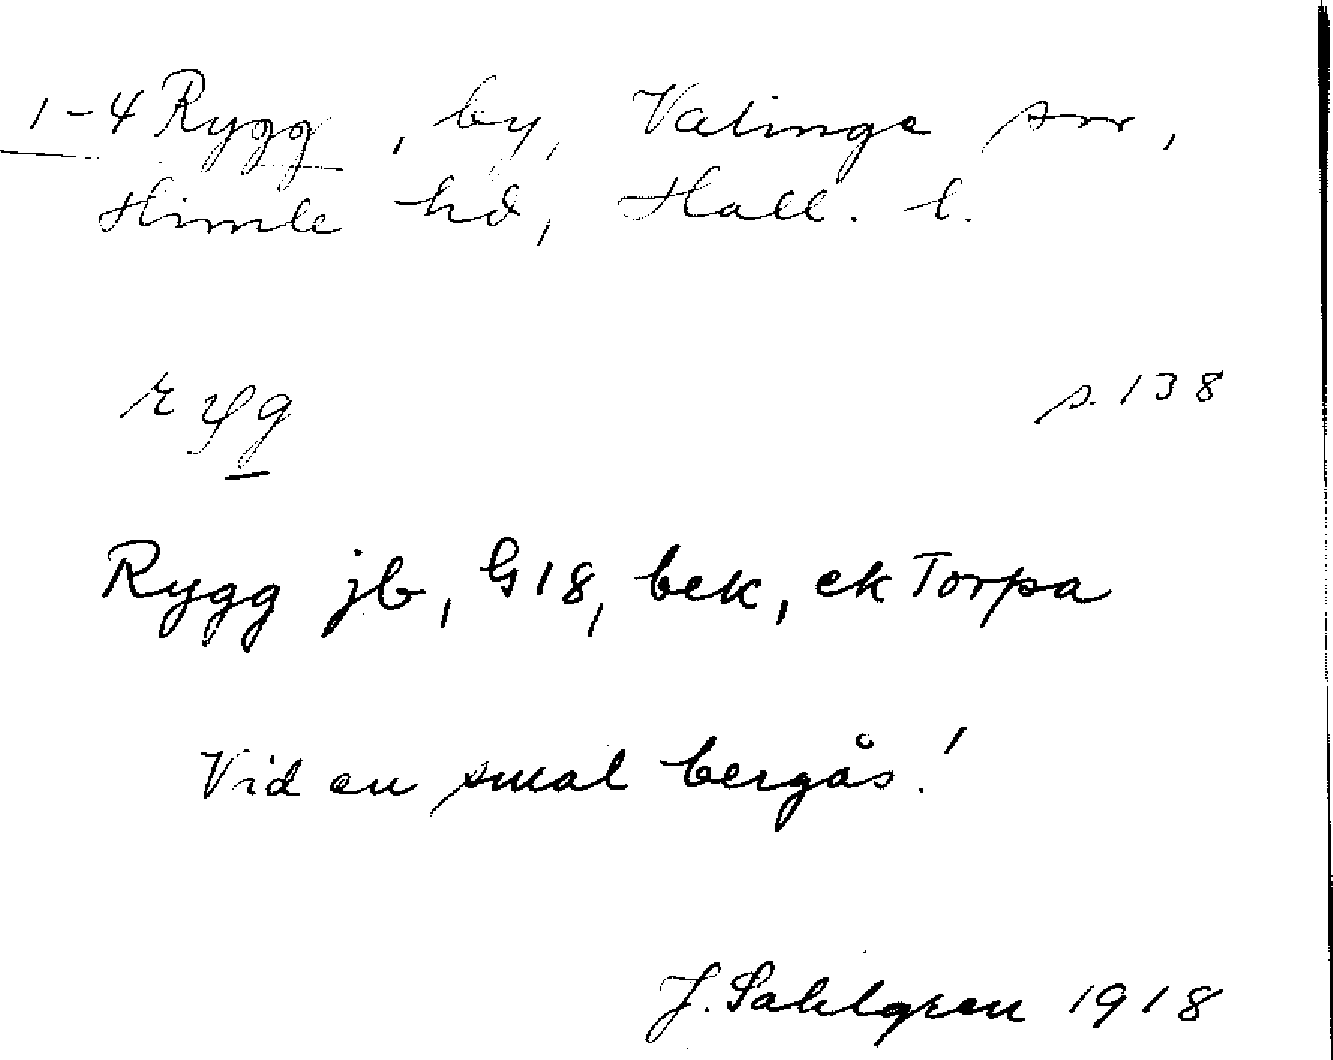 1-4 Rygg, by, Valinge sn,
Himle hd, Hall. l.
s. 138
Rygg jb, G18, bek, ek Torpa
Vid en smal bergås!
J. Sahlgren 1918